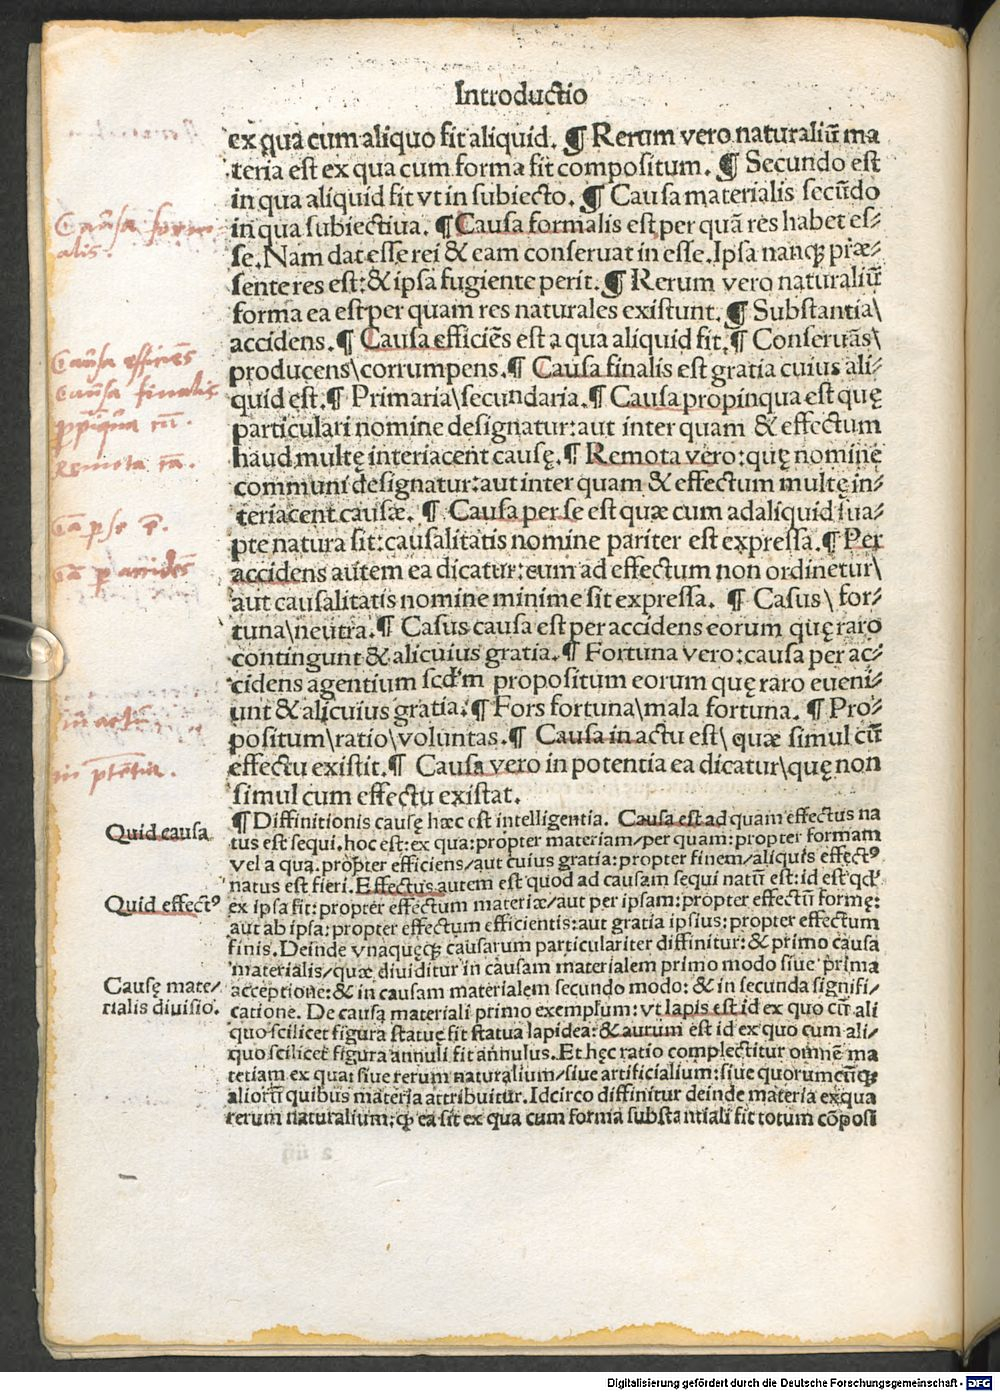 Introductio
ex qua cum aliquo fit aliquid. ¶ Rerum vero naturaliū ma
teria est ex qua cum forma fit compositum. ¶ Secundo est
in qua aliquid fit vt in subiecto. ¶ Causa materialis secūdo
in qua subiectiua. ¶ Causa formalis est per quā res habet es⸗
se. Nam dat esse rei & eam conseruat in esse. Ipsa nanqꝫ præ⸗
sente res est: & ipsa fugiente perit. ¶ Rerum vero naturaliū
forma ea est per quam res naturales existunt. ¶ Substantia\
accidens. ¶ Causa efficiēs est a qua aliquid fit. ¶ Conseruās\
producens\corrumpens. ¶ Causa finalis est gratia cuius ali⸗
quid est. ¶ Primaria\secundaria. ¶ Causa propinqua est quę
particulari nomine designatur: aut inter quam & effectum
haud multę interiacent causę. ¶ Remota vero: quę nomine
communi designatur: aut inter quam & effectum multę in⸗
teriacent causæ. ¶ Causa per se est quæ cum ad aliquid sua⸗
pte natura sit: causalitatis nomine pariter est expressa. ¶ Per
accidens autem ea dicatur: cum ad effectum non ordinetur\
aut causalitatis nomine minime sit expressa. ¶ Casus\ for⸗
tuna\neutra. ¶ Casus causa est per accidens eorum quę raro
contingunt & alicuius gratia. ¶ Fortuna vero: causa per ac⸗
cidens agentium scd'm propositum eorum quę raro eueni⸗
unt & alicuius gratia. ¶ Fors fortuna\mala fortuna. ¶ Pro⸗
positum\ratio\voluntas. ¶ Causa in actu est\ quæ simul cū
effectu existit. ¶ Causa vero in potentia ea dicatur\quę non
simul cum effectu existat.
¶ Diffinitionis causę hæc est intelligentia. Causa est ad quam effectus na
tus est sequi. hoc est: ex qua: propter materiam/per quam: propter formam
vel a qua. propter efficiens/aut cuius gratia: propter finem/aliquis effectꝰ
natus est fieri. Effectus autem est quod ad causam sequi natū est: id est qd'
ex ipsa fit: propter effectum materiæ/aut per ipsam: propter effectū formę:
aut ab ipsa: propter effectum efficientis: aut gratia ipsius: propter effectum
finis. Deinde vnaquęqꝫ causarum particulariter diffinitur: & primo causa
materialis/quæ diuiditur in causam materialem primo modo siue prima
acceptione: & in causam materialem secundo modo: & in secunda signifi⸗
catione. De causa materiali primo exemplum: vt lapis est id ex quo cū ali
quo scilicet figura statuę fit statua lapidea: & aurum est id ex quo cum ali⸗
quo scilicet figura annuli fit annulus. Et hęc ratio complectitur omnē ma
teriam ex qua: siue rerum naturalium/siue artificialium: siue quorumcūqꝫ
aliorū quibus materia attribuitur. Idcirco diffinitur deinde materia ex qua
rerum naturalium: ꝙ ea sit ex qua cum forma substantiali fit totum cōposi
Causa form
alis.
Causa efficiēs
Causa finalis
Remota cā.
Cā ꝑ se
Cā ꝑ accidēs
in actu
in potētia.
Quid causa
Quid effectꝰ
Causę mate⸗
rialis diuisio.
Digitalisierung gefördert durch die Deutsche Forschungsgemeinschaft - DFG